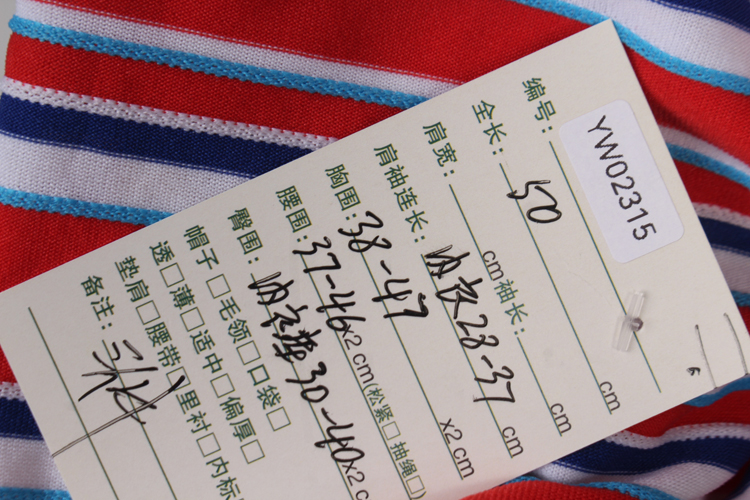 编号: YW02315
全长: 50 cm
肩宽: cm袖长: cm
肩袖连长: 内衣28-37 cm
胸围: 38-47 x2 cm
腰围: 37-46 x2 cm(松紧□ 抽绳□)
臀围: 内衣垫30-40 x2 c
帽子□毛领□口袋□
透□薄□适中□偏厚□
垫肩□腰带□里衬□内标
备注: